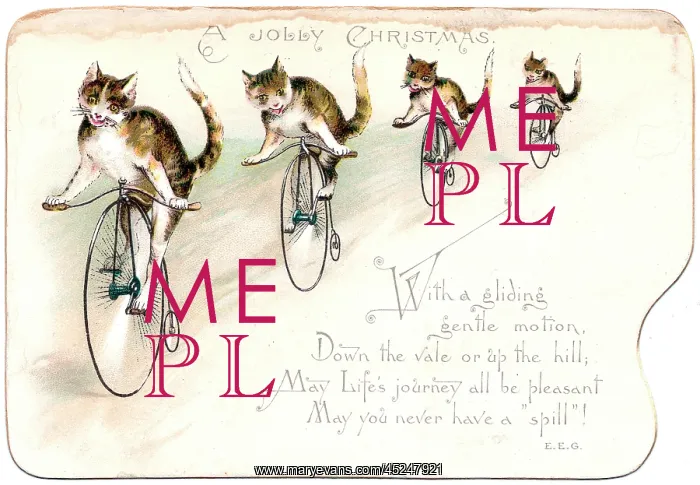 A JOLLY CHRISTMAS.
ME
PL
ME
PL
With a gliding
gentle motion,
Down the vale or up the hill;
May Life's journey all be pleasant
May you never have a "spill"!
E.E.G.
www.maryevans.com/45247921